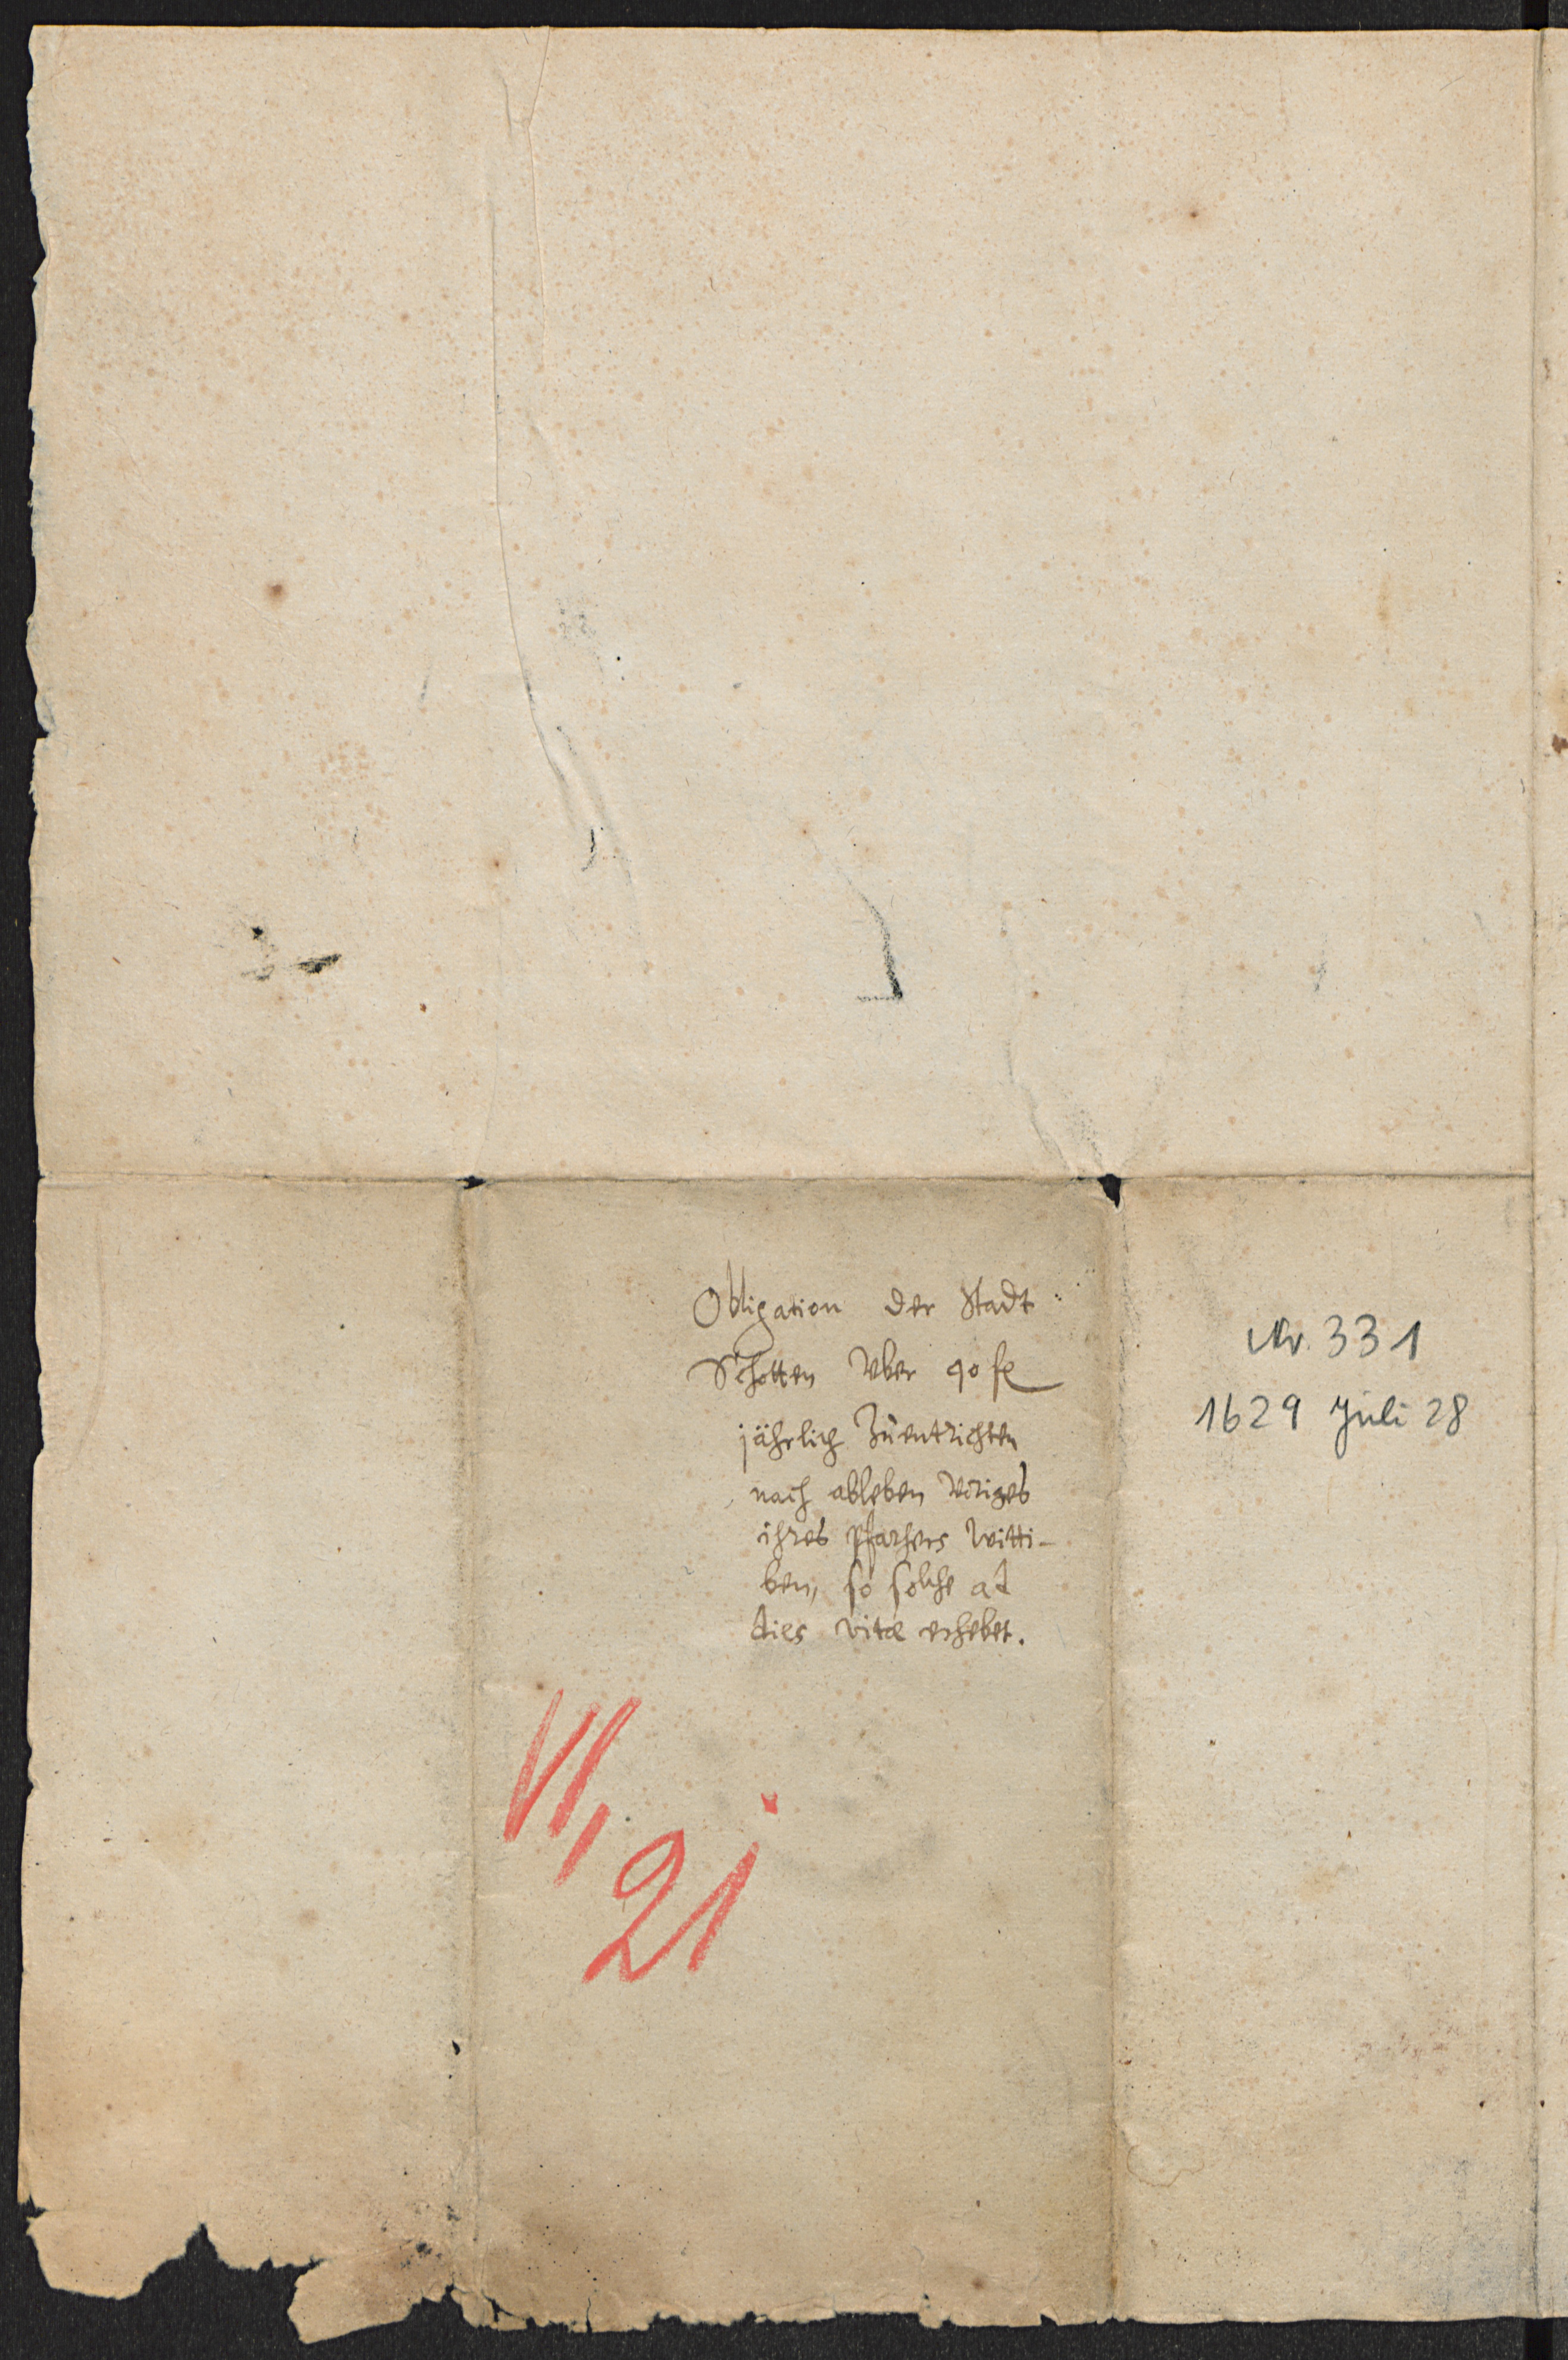 Obligation der Stadt
Schotten Uber 90 fl
jährlich Zuentrichten
nach ableben Voriges
ihres Pfarhers Witti-
ben, so solche ad
dies vitæ erhebet.
Nr. 331
1629 Juli 28
VI,
21